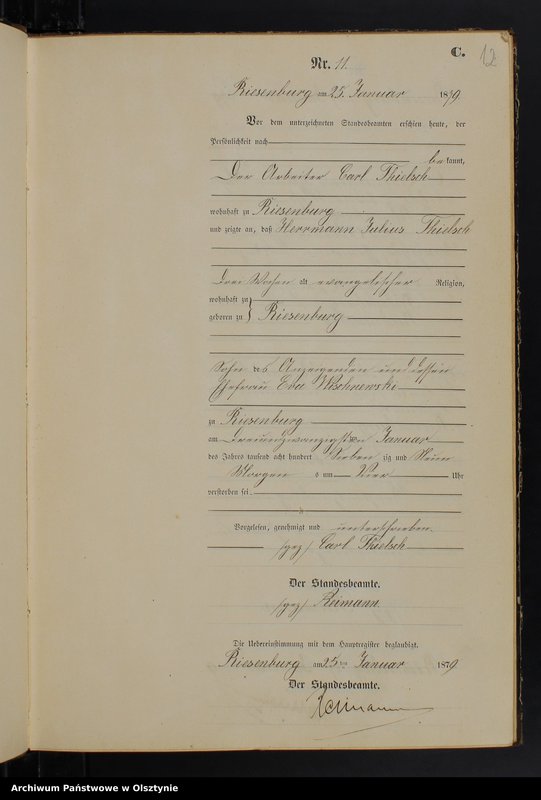 C.
12
Nr. 11.
Riesenburg am 25. Januar 1879.
Vor dem unterzeichneten Standesbeamten erschien heute, der
Persönlichkeit nach
bekannt,
Der Arbeiter Carl Thielsch
wohnhaft zu Riesenburg
und zeigte an, daß Herrmann Julius Thielsch
drei Wochen alt evangelischer Religion,
wohnhaft zu
geboren zu } Riesenburg
Sohn des Anzeigenden und dessen
Ehefrau Eva Wischnewski
zu Riesenburg
am dreiundzwanzigsten Januar
des Jahres tausend acht hundert Siebenzig und Neun
Morgens um Vier Uhr
verstorben sei.
Vorgelesen, genehmigt und unterschrieben.
(gez) Carl Thielsch
Der Standesbeamte.
(gez) Reimann
Die Uebereinstimmung mit dem Hauptregister beglaubigt.
Riesenburg am 25ten Januar 1879.
Der Standesbeamte.
Reimann
Archiwum Państwowe w Olsztynie